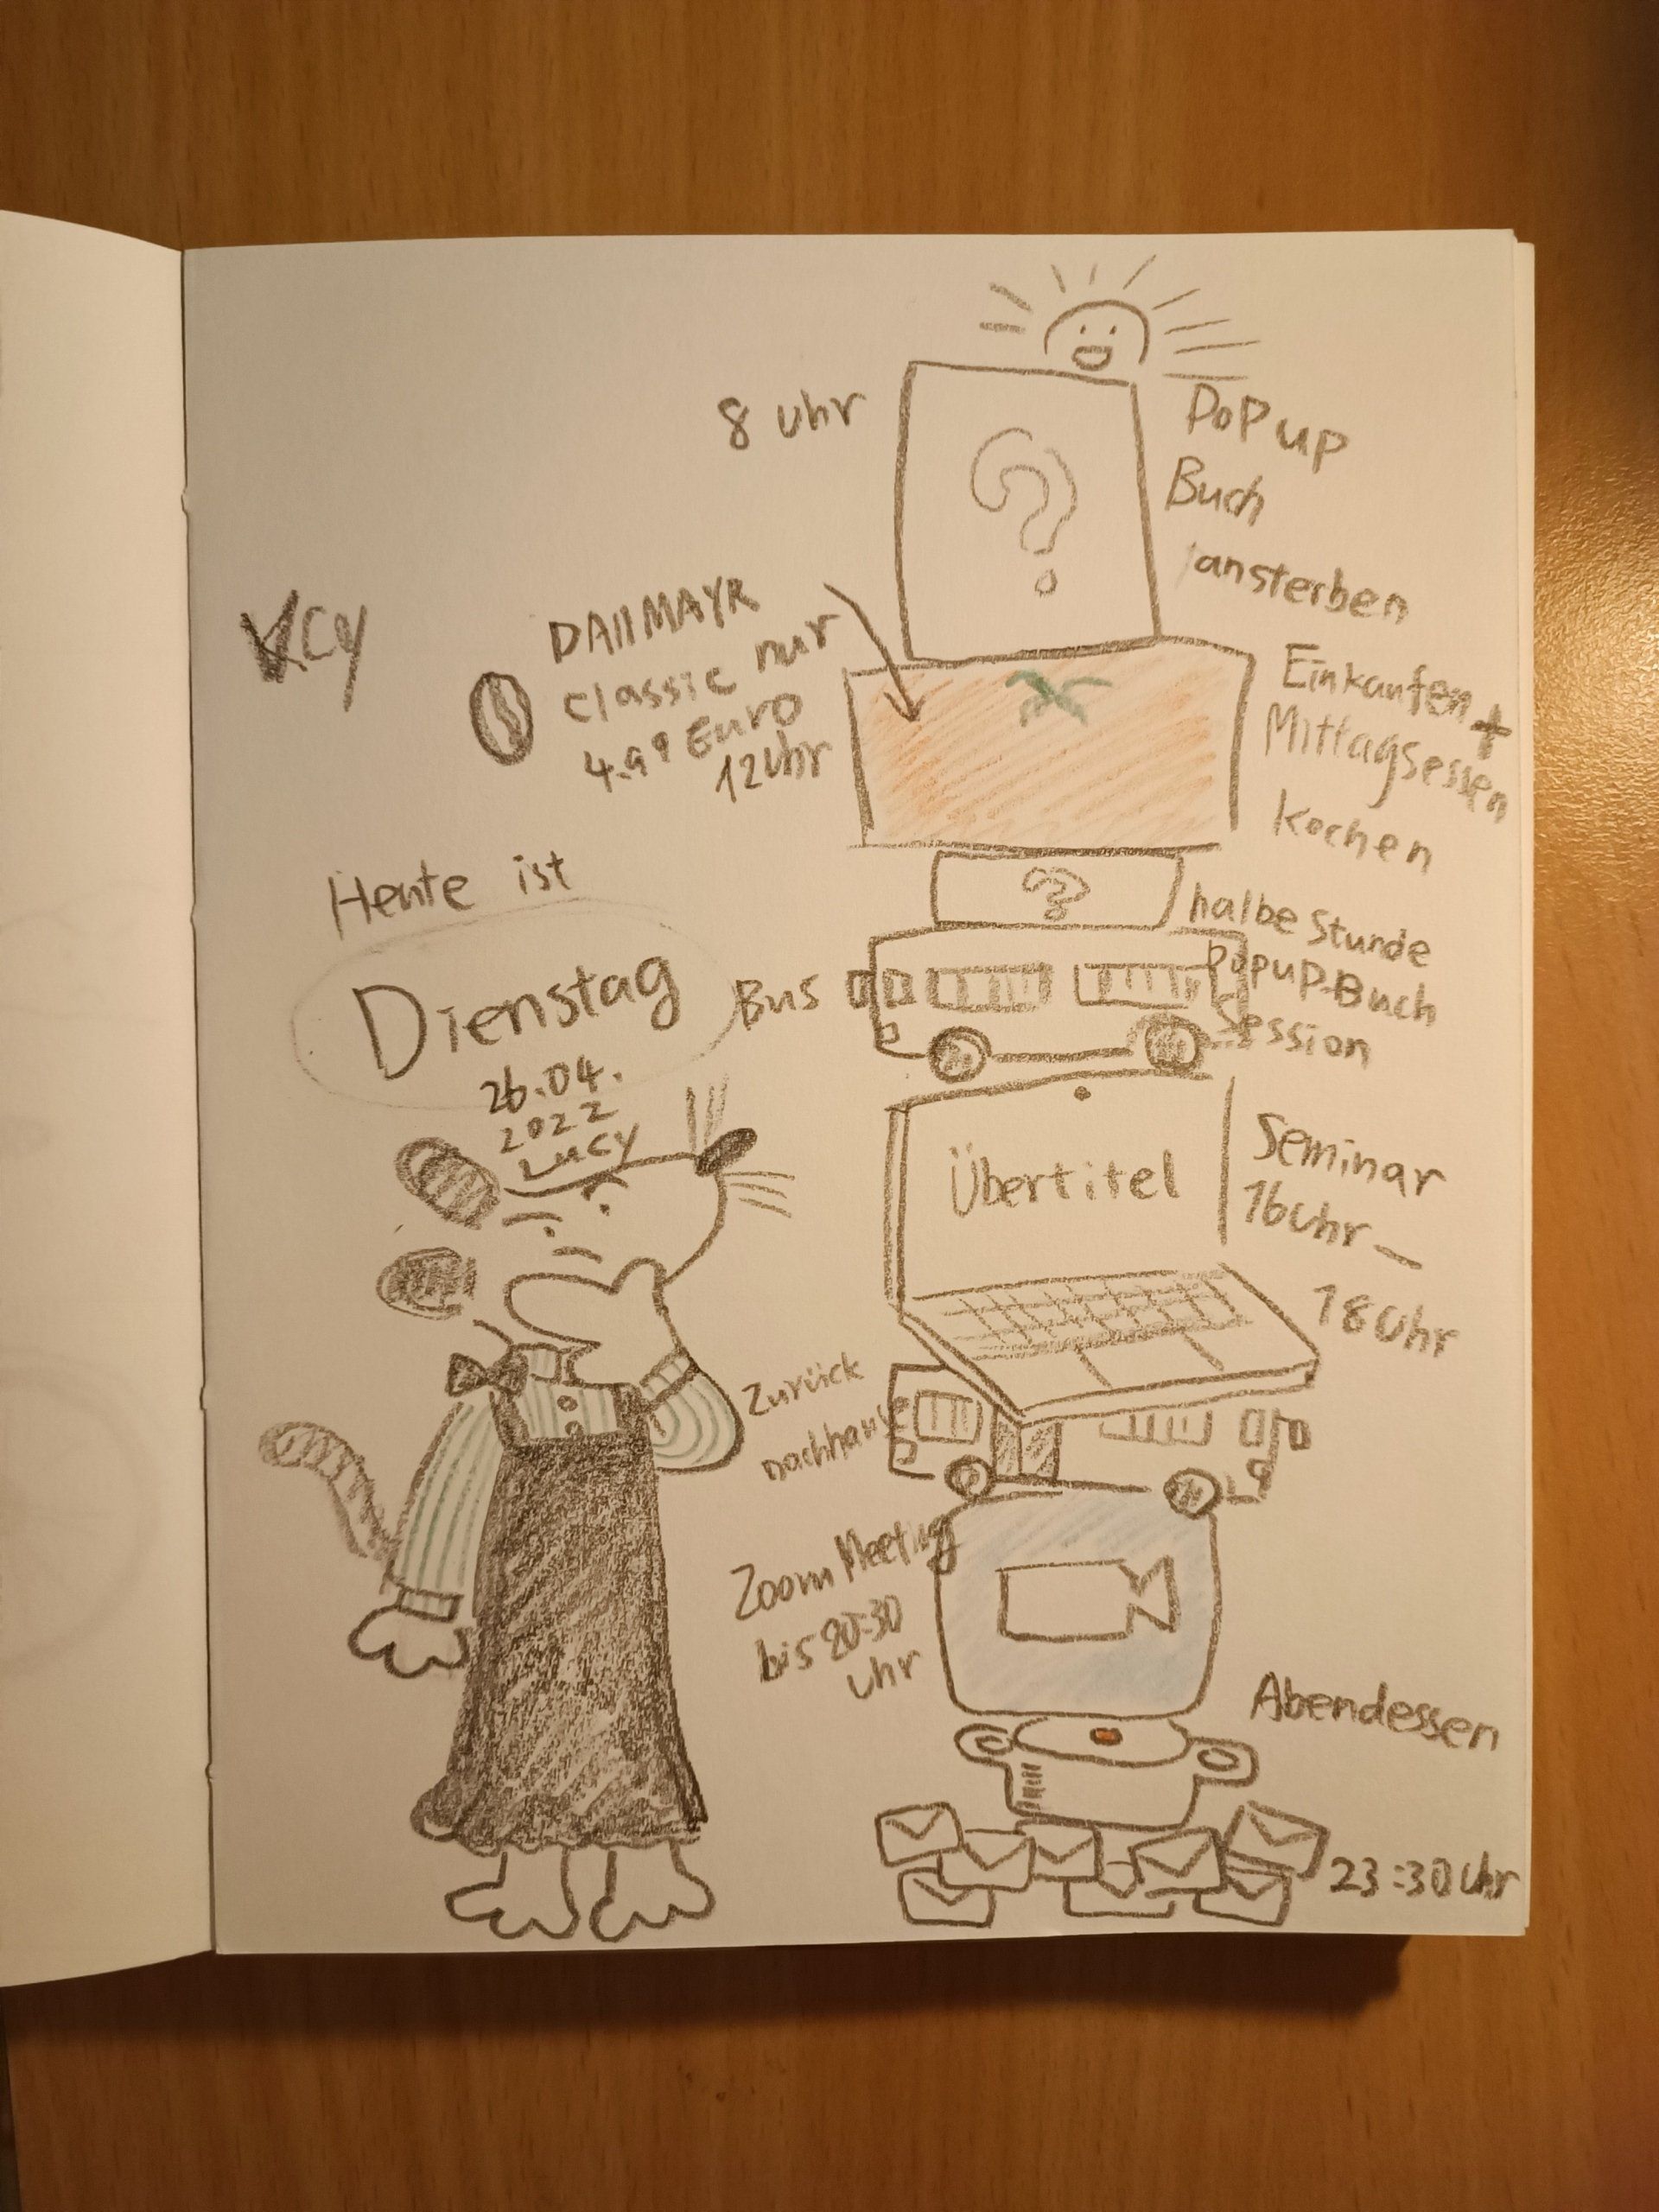 8 uhr
PoPup
Buch
ansterben
DAllMAYR
classic nur
4.99 Euro
12Uhr
Einkaufen +
Mittagsessen
kochen
Heute ist
Dienstag
26.04.
2022
Lucy
halbe Stunde
Popup-Buch
Session
Bus
Übertitel
Seminar
16Uhr –
18Uhr
Zurück
nachhause
Zoom Meeting
bis 20:30
uhr
Abendessen
23:30Uhr